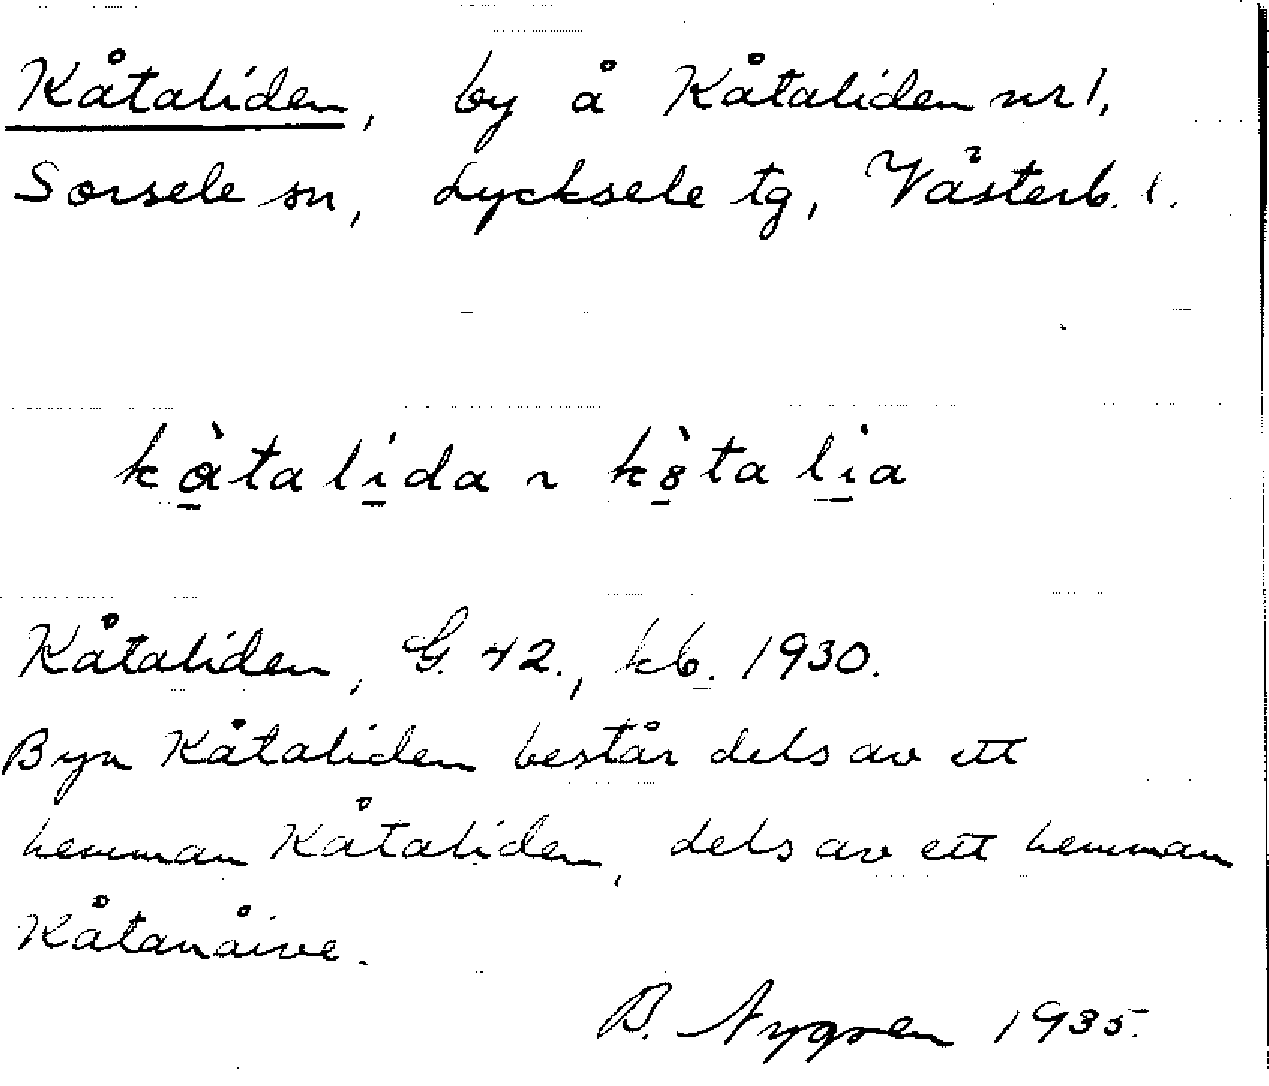 Kåtaliden, by å Kåtaliden nr 1,
Sorsele sn, Lycksele tg, Västerb. l.
kòtalída ~ kòtalia
Kåtaliden, G. 42., kb. 1930.
Byn Kåtaliden består dels av ett
hemman Kåtaliden, dels av ett hemman
Kåtanåive.
B. Nygren 1935.